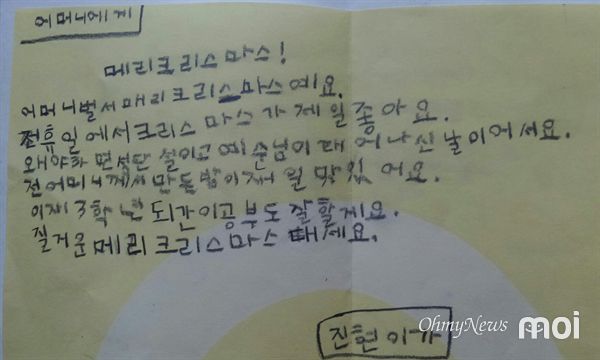 어머니에게
메리크리스마스!
어머니벌서매리크리스마스예요.
전휴일에서크리스마스가제일좋아요.
왜야하면성탄설이고예순님이태어나신날이어서요.
전어머니께서만든밥이제일맛있어요.
이제3학년되간이공부도잘할게요.
질거운메리크리스마스때세요.
진현이가
OhmyNews
moi